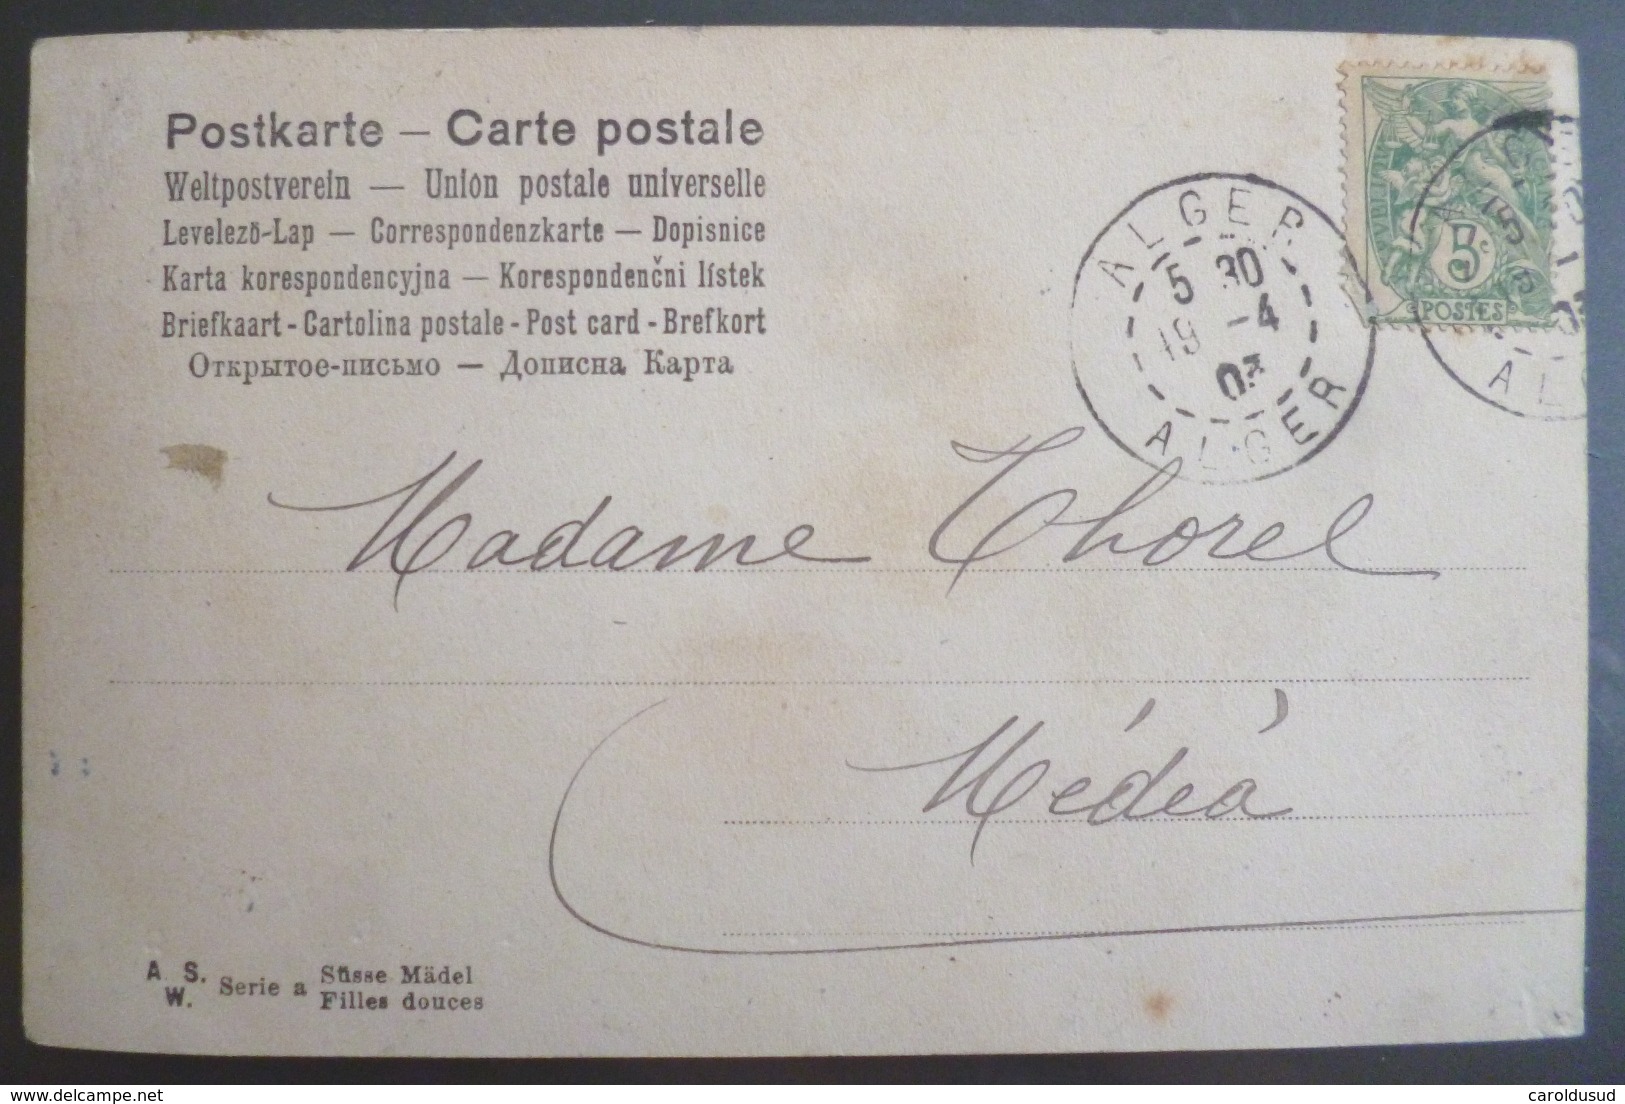 Postkarte – Carte postale
Weltpostverein — Union postale universelle
Levelező-Lap — Correspondenzkarte — Dopisnice
Karta korespondencyjna — Korespondenčni lístek
Briefkaart - Cartolina postale - Post card - Brefkort
Открытое-письмо — Дописна Карта
ALGER
5 30
19 -4
03
ALGER
5c
POSTES
Madame Thorel
Médéa
A. S. W. Serie a Süsse Mädel
Filles douces
caroldusud